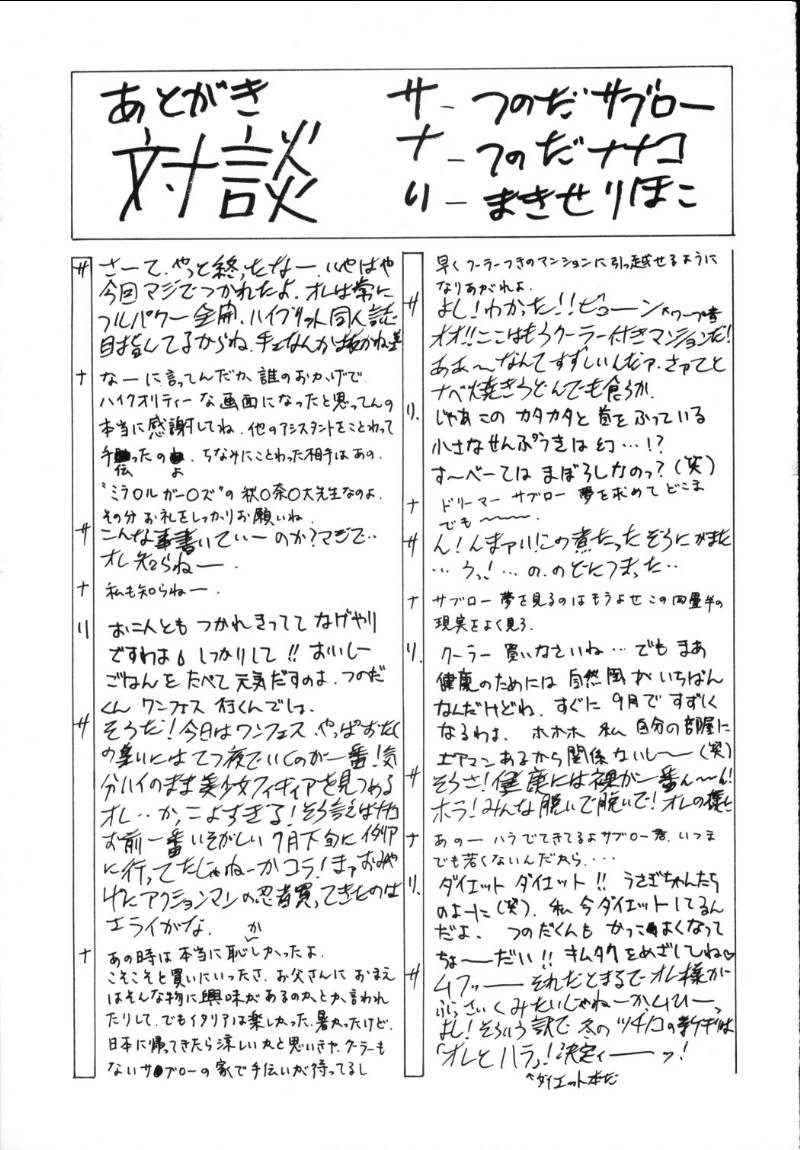 あとがき
対談
サ－つのだサブロー
ナ－つのだナナコ
り－まきせりほこ
サ さーて、やっと終ったなー、いやはや
今回マジでつかれたよ、オレは常に
フルパワー全開、ハイブリット同人誌
目指してるからね、手なんかは抜かねェ
ナ なーに言ってんだか、誰のおかげで
ハイクオリティーな画面になったと思ってんの
本当に感謝してね、他のアシスタントをことわって
手伝ったのよ、ちなみにことわった相手はあの、
"ミラ〇ルガー〇ズ"の秋〇奈〇大先生なのよ、
その分お礼をしっかりお願いね、
サ こんな事書いていーのか？マジで‥
オレ知らねー、
ナ 私も知らねー、
り お二人とも つかれきってて なげやり
ですわよ しっかりして!! おいしー
ごはんをたべて元気だすのよ、つのだ
くん ワンフェス 行くんでしょ、
サ そうだ！今日はワンフェス、やっぱおたく
の集いにはてつ夜でいくのが一番！気
分ハイのまま美少女フィギュアを見つめる
オレ‥かっこよすぎる！そう言えばナナコ
お前一番いそがしい7月下旬にイタリア
に行ってたじゃねーかコラ！まァおみや
げにアクションマンの忍者買ってきたのは
エライがな、
ナ あの時は本当に恥かしかったよ、
こそこそと買いにいったさ、お父さんにおまえ
はそんな物に興味があるのかとか言われ
たりして、でもイタリアは楽しかった、暑かったけど、
日本に帰ってきたら涼しいかと思いきや、クーラーも
ないサブローの家で手伝いが待ってるし
早くクーラーつきのマンションに引っ越せるように
なりあがれよ、
サ よし！わかった!!ビューン↖ワープ音
オオ!!ここはもうクーラー付きマンションだ！
ああ～なんてすずしいんだァ、さァてと
ナベ焼きうどんでも食うか、
り、 じゃあこの カタカタと首をふっている
小さなせんぷうきは幻…!?
すーべーては まぼろしなのっ？(笑)
ナ ドリーマー サブロー 夢を求めてどこま
でも～～～、
サ ん！んまァい！この煮たったぞうにがまた
…うっ！…の、のどにつまった‥
ナ サブロー 夢を見るのはもうよせ この四畳半の
現実をよく見ろ、
り、 クーラー 買いなさいね… でも まあ
健康のためには 自然風がいちばん
なんだけどね、すぐに 9月で すずしく
なるわよ、 ホホホ 私 自分の部屋に
エアマンあるから関係ないし～(笑)
サ そうさ！健康には裸が一番ん～ん！
ホラ！みんな脱いで脱いで！オレの様に
ナ あのー ハラでてきてるよサブロー君、いつま
でも若くないんだから、‥‥
り、 ダイエット ダイエット!! うさぎちゃんたち
のよーに(笑)、私 今ダイエットしてるん
だよ、 つのだくんも かっこよくなって
ちょーだい!! キムタクをめざしてね♡
サ ムフッーー それだとまるでオレ様が
ぶさいくみたいじゃねーか、ムヒーっ
よし！そういう訳で 冬の ツチノコの新刊は
「オレとハラ」！決定ィーーッ！
↖ダイエット本だ